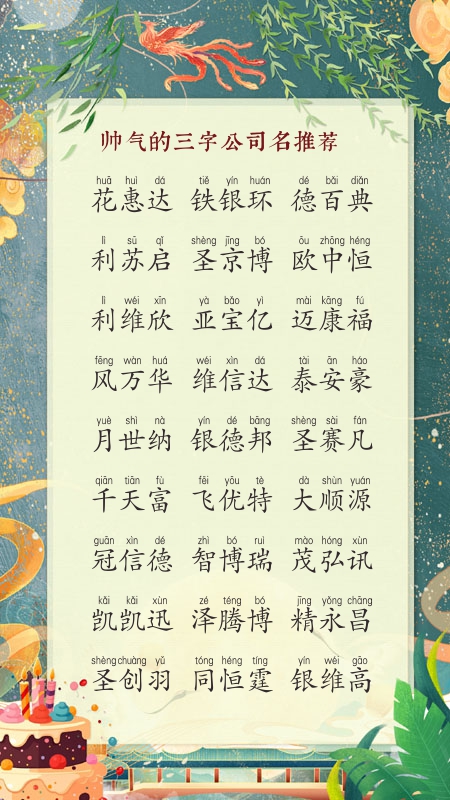 帅气的三字公司名推荐
huā huì dá tiě yín huán dé bǎi diǎn
花惠达 铁银环 德百典
lì sū qǐ shèng jīng bó ōu zhōng héng
利苏启 圣京博 欧中恒
lì wéi xīn yà bǎo yì mài kāng fú
利维欣 亚宝亿 迈康福
fēng wàn huá wéi xìn dá tài ān háo
风万华 维信达 泰安豪
yuè shì nà yín dé bāng shèng sài fán
月世纳 银德邦 圣赛凡
qiān tiān fù fēi yōu tè dà shùn yuán
千天富 飞优特 大顺源
guān xìn dé zhì bó ruì mào hóng xùn
冠信德 智博瑞 茂弘讯
kǎi kǎi xùn zé téng bó jīng yǒng chāng
凯凯迅 泽腾博 精永昌
shèng chuàng yǔ tóng héng tíng yín wéi gāo
圣创羽 同恒霆 银维高